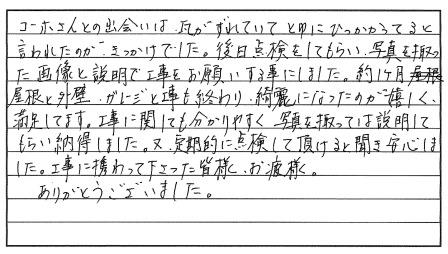 コーホさんとの出会いは、瓦がずれていてとゆにひっかかってると
言われたのがきっかけでした。後日点検をしてもらい、写真を撮っ
た画像と説明で工事をお願いする事にしました。約1ヶ月
屋根と外壁、ガレージと工事も終わり、綺麗になったのが嬉しく、
満足してます。工事に関しても分かりやすく、写真を撮っては説明して
もらい納得しました。又、定期的に点検して頂けると聞き安心しま
した。工事に携わって下さった皆様、お疲様。
ありがとうございました。